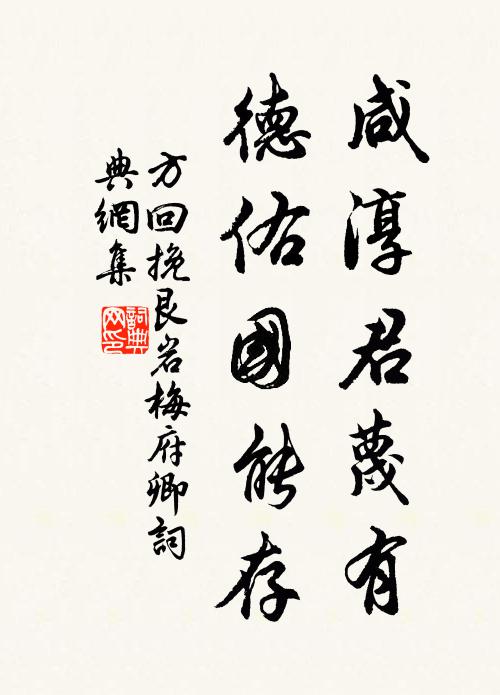 咸淳君蔑有
德佑國能存
方回挽艮岩梅府卿詞
典網集
詞典網印